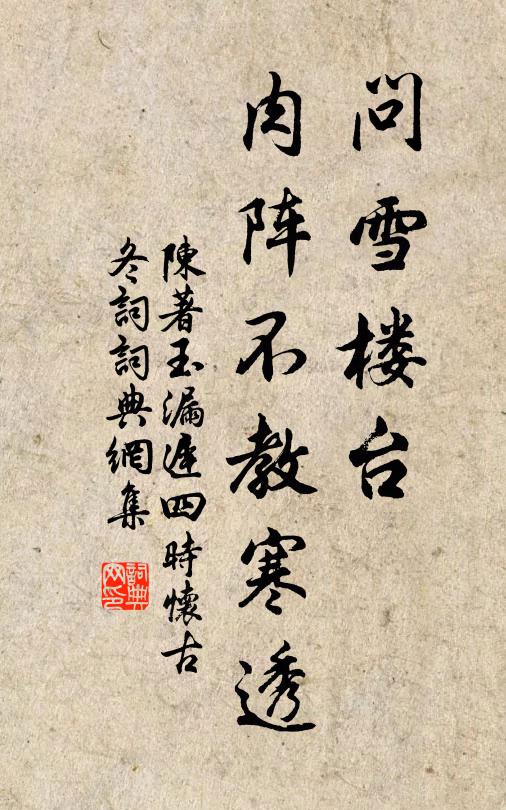 问雪楼台
肉阵不教寒透
陳著玉漏遲四時懷古
冬詞詞典網集
詞典网印